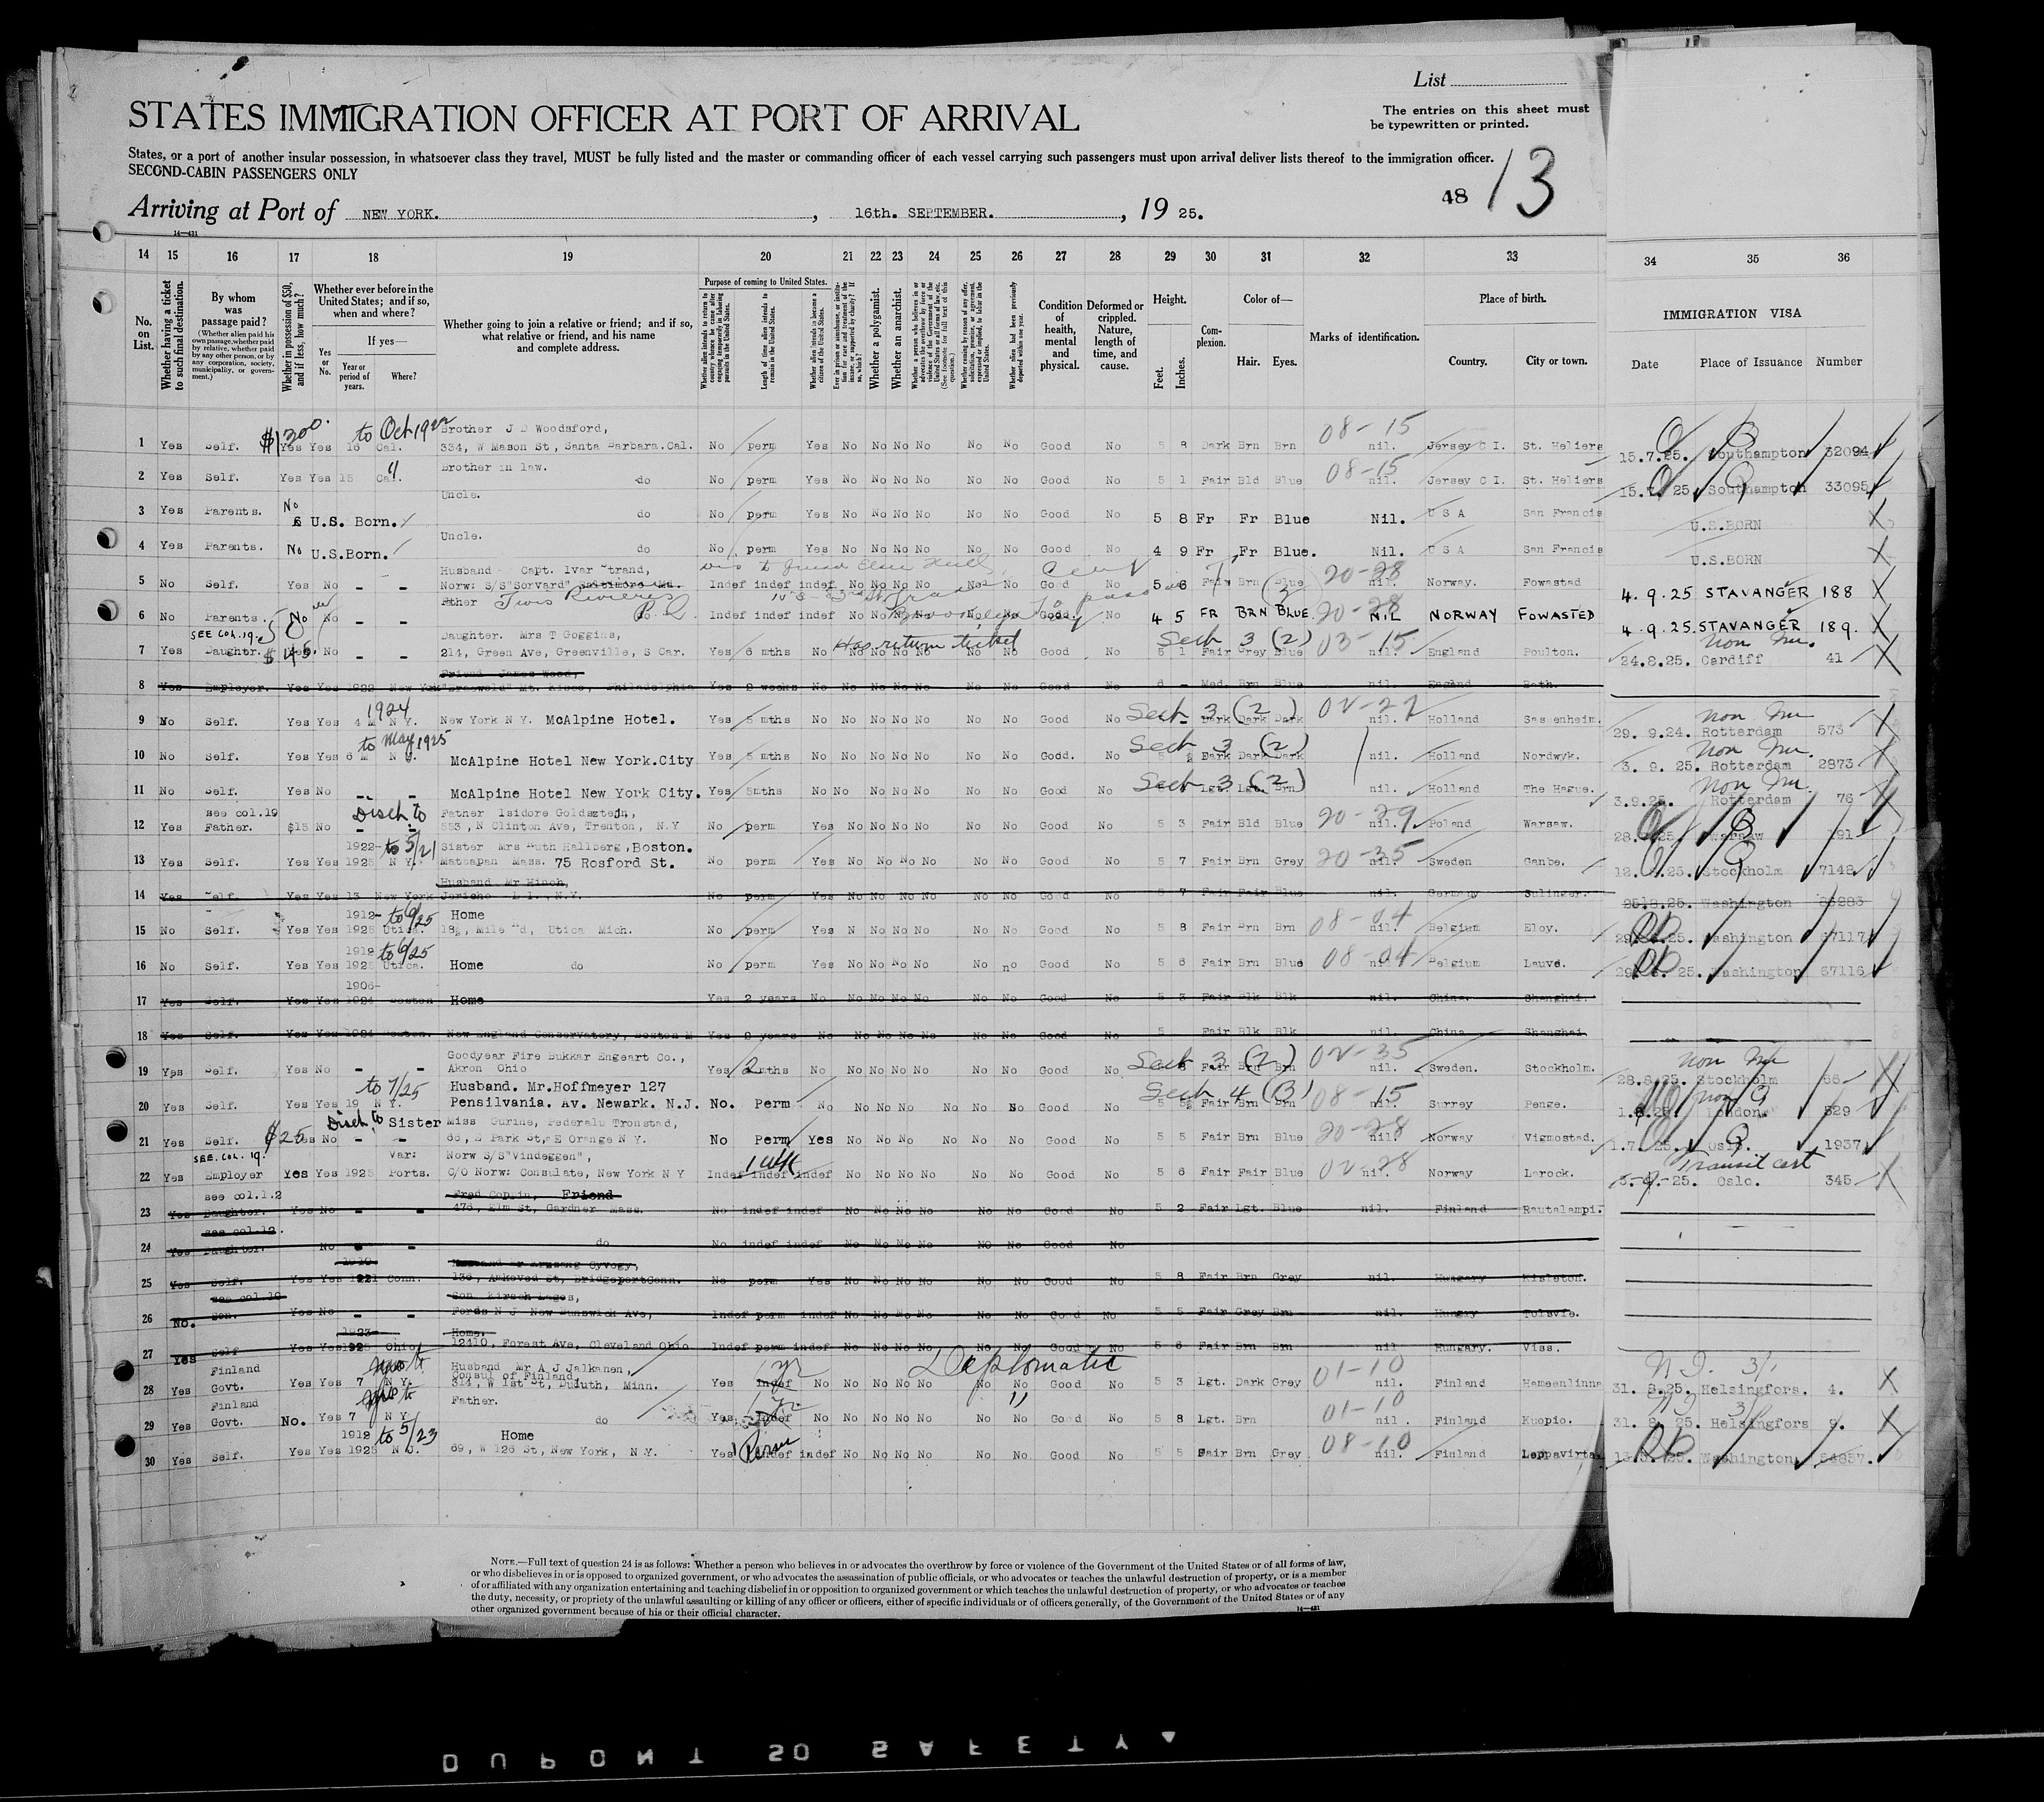 List
The entries on this sheet must
be typewritten or printed.
STATES IMMIGRATION OFFICER AT PORT OF ARRIVAL
States, or a port of another insular possession, in whatsoever class they travel, MUST be fully listed and the master or commanding officer of each vessel carrying such passengers must upon arrival deliver lists thereof to the immigration officer.
SECOND-CABIN PASSENGERS ONLY
48 13
Arriving at Port of NEW YORK. , 16th. SEPTEMBER. , 19 25.
14 15 16 17 18 19 20 21 22 23 24 25 26 27 28 29 30 31 32 33 34 35 36
No. on List.
Whether having a ticket to such final destination.
By whom was passage paid?
(Whether alien paid his own passage, whether paid by relative, whether paid by any other person, or by any corporation, society, municipality, or government.)
Whether in possession of $50, and if less, how much?
Whether ever before in the United States; and if so, when and where?
Yes or No.
If yes—
Year or period of years.
Where?
Whether going to join a relative or friend; and if so, what relative or friend, and his name and complete address.
Purpose of coming to United States.
Length of time alien intends to remain in the United States.
Whether alien intends to become a citizen of the United States.
Whether a polygamist.
Whether an anarchist.
Condition of health, mental and physical.
Deformed or crippled. Nature, length of time, and cause.
Height.
Feet.
Inches.
Complexion.
Color of—
Hair.
Eyes.
Marks of identification.
Place of birth.
Country.
City or town.
IMMIGRATION VISA
Date Place of Issuance Number
to Oct 1922 Brother J D Woodsford, 08-15
1 Yes Self. $1300. Yes Yes 16 Cal. 334, W Mason St, Santa Barbara.Cal. No perm Yes No No No No No No Good No 5 8 Dark Brn Brn nil. Jersey C I. St. Heliers 15.7.25. Southampton 32094
Brother in law. 08-15
2 Yes Self. Yes Yes 15 Cal. do No perm Yes No No No No No No Good No 5 1 Fair Bld Blue nil. Jersey C I. St. Heliers 15.7.25 Southampton 33095
Uncle.
3 Yes Parents. No U.S. Born. do No perm Yes No No No No No No Good No 5 8 Fr Fr Blue Nil. U S A San Francis U.S.BORN
Uncle.
4 Yes Parents. No U.S.Born. do No perm Yes No No No No No No Good No 4 9 Fr Fr Blue. Nil. U S A San Francis U.S.BORN
Husband Capt. Ivar Strand, 20-28
5 No Self. Yes No - - Norw: S/S"Sorvard" Baltimore Md. Indef indef indef No No No No No No Good No 5 6 Fair Brn Blue nil. Norway. Fowastad 4.9.25 STAVANGER 188
6 No Parents. No No do Indef indef indef No No No No No No Good. No 4 5 FR BRN BLUE 20-28 NIL NORWAY FOWASTED 4.9.25. STAVANGER 189.
SEE COL.19. Daughter. Mrs T Goggins, Has return ticket Sect 3 (2) 03-15 Non Im.
7 Yes Daughtr. $45. No - - 214, Green Ave, Greenville, S Car. Yes 6 mths No No No No No No No Good No 5 1 Fair Grey Blue nil. England Poulton. 24.8.25. Cardiff 41
Friend James Wood,
8 Yes Employer. Yes Yes 1922 New York Mt. Kisco, Philadelphia Yes 2 weeks No No No No No No No Good No 6 - Med. Brn Blue nil. England Bath.
1924 Sect 3 (2) 02-27 Non Im
9 No Self. Yes Yes 4 M N Y. New York N Y. McAlpine Hotel. Yes 5 mths No No No No No No No Good No Dark Dark Dark nil. Holland Sassenheim. 29. 9.24. Rotterdam 573
to May 1925 Sect 3 (2) Non Im.
10 No Self. Yes Yes 6 M N Y. McAlpine Hotel New York.City Yes 5 mths No No No No No No No Good. No Dark Dark Dark nil. Holland Nordwyk. 3. 9. 25. Rotterdam 2873
Sect 3 (2) Non Im.
11 No Self. Yes No - - McAlpine Hotel New York City. Yes 5mths No No No No No No No Good No Lgt. Lgt. Brn nil. Holland The Hague. 3.9.25. Rotterdam 76
see col.19 Disch. to Father Isidore Goldsztejn, 20-29
12 Yes Father. $15 No - - 553, N Clinton Ave, Trenton, N.Y No perm Yes No No No No No No Good No 5 3 Fair Bld Blue nil. Poland Warsaw. Warsaw 191
1922- to 5/21 Sister Mrs Ruth Hallberg, Boston. 20-35
13 Yes Self. Yes Yes 1925 N Y. Mattapan Mass. 75 Rosford St. No perm Yes No No No No No No Good No 5 7 Fair Brn Grey nil. Sweden Ganbe. Stockholm 7148
Husband Mr Hinch,
14 Yes Self. Yes Yes 13 New York Jericho L I., N.Y. No perm Yes No No No No No No Good No 5 7 Fair Fair Blue nil. Germany Solinger. Washington
1912- to 6/25 Home 08-04
15 No Self. Yes Yes 1925 Utica. 18½, Mile Rd, Utica Mich. No perm Yes N No No No No No Good No 5 8 Fair Brn Brn nil. Belgium Eloy. Washington 67117
1912 to 6/25 08-04
16 No Self. Yes Yes 1925 Utica. Home do No perm Yes No No No No No no Good No 5 6 Fair Brn Blue nil. Belgium Lauve. Washington 67116
1906-
17 Yes Self. Yes Yes 1924 Boston Home Yes 2 years No No No No No No No Good No 5 3 Fair Blk Blk nil. China. Shanghai.
18 Yes Self. Yes Yes 1924 Boston. New England Conservatory, Boston M Yes 2 years No No No No No No No Good No 5 Fair Blk Blk nil. China Shanghai
Goodyear Fire Bukkar Engeart Co., Sect 3 (2) 02-35 Non Im
19 Yes Self. Yes No - - Akron Ohio Yes 2 mths No No No No No No No Good No Fair Brn Brn nil. Sweden. Stockholm. 28.8.25. Stockholm 66
to 7/25 Husband. Mr.Hoffmeyer 127 Sect 4 (B) 08-15
20 Yes Self. Yes Yes 19 N Y. Pensilvania. Av. Newark. N.J. No. Perm No No No No No No No Good No 5 Fair Brn Brn nil. Surrey Penge. London. 529
Disch. to Sister Miss Gurine, Pederals Tronstad, 20-28
21 Yes Self. $25 Yes No - - 66, E Park St, E Orange N Y. No Perm Yes No No No No No No Good No 5 5 Fair Brn Blue nil. Norway Vigmostad. Oslo. 1937
SEE. COL. 19. Var: Norw S/S"Vindeggen", 1 wk 02-28 Transit cert
22 Yes Employer Yes Yes 1925 Ports. C/O Norw: Consulate, New York N Y Indef indef indef No No No No No No Good No 5 6 Fair Fair Blue nil. Norway Larock. 3.-9.-25. Oslo. 345
see col.1.2 Fred Coppin, Friend
23 Yes Daughter. Yes No - - 476, Elm St, Gardner Mass. No indef indef No No No No No No Good No 5 2 Fair Lgt. Blue nil. Finland Rautalampi.
see col.12.
24 Yes Daughter. No - - do No indef indef No No No No NO No Good No
1910
25 Yes Self. Yes Yes 1921 Conn. BridgeportConn. No perm Yes No No No No No No Good No 5 8 Fair Brn Grey nil. Hungary Kisleton.
see col.19 Son.
26 No. Son. Yes No - - Fords N J New Bunswick Ave, Indef perm indef No No No No No No Good No 5 5 Fair Grey Brn nil. Hungry Tolsvie.
1923- Home.
27 Yes Self Yes Yes 1925 Ohio 12410, Forest Ave, Cleveland Ohio Indef perm indef No No No No No No Good No 5 6 Fair Brn Brn nil. Hungary. Viss.
Finland Husband Mr A J Jalkanen, 1 yr Diplomatic 01-10
Consul of Finland,
28 Yes Govt. Yes Yes 7 N Y. 314, W 1st St, Duluth, Minn. Yes indef No No No No No No No Good No 5 3 Lgt. Dark Grey nil. Finland Hameenlinna 31. 8.25. Helsingfors. 4.
Finland Father. 1 yr " 01-10
29 Yes Govt. No. Yes 7 N Y do Yes indef No No No No No No No Good No 5 8 Lgt. Brn nil. Finland Kuopio. 31. 8. 25. Helsingfors 9.
1912 to 5/23 Home Perm 08-10
30 Yes Self. Yes Yes 1925 N Y. 69, W 126 St, New York, N.Y. Yes indef indef No No No No No No Good No 5 5 Fair Brn Grey nil. Finland Leppavirta Washington 54857.
NOTE.—Full text of question 24 is as follows: Whether a person who believes in or advocates the overthrow by force or violence of the Government of the United States or of all forms of law,
or who disbelieves in or is opposed to organized government, or who advocates the assassination of public officials, or who advocates or teaches the unlawful destruction of property, or is a member
of or affiliated with any organization entertaining and teaching disbelief in or opposition to organized government or which teaches the unlawful destruction of property, or who advocates or teaches
the duty, necessity, or propriety of the unlawful assaulting or killing of any officer or officers, either of specific individuals or of officers generally, of the Government of the United States or of any
other organized government because of his or their official character.
14—431
DUPONT SO SAFETY